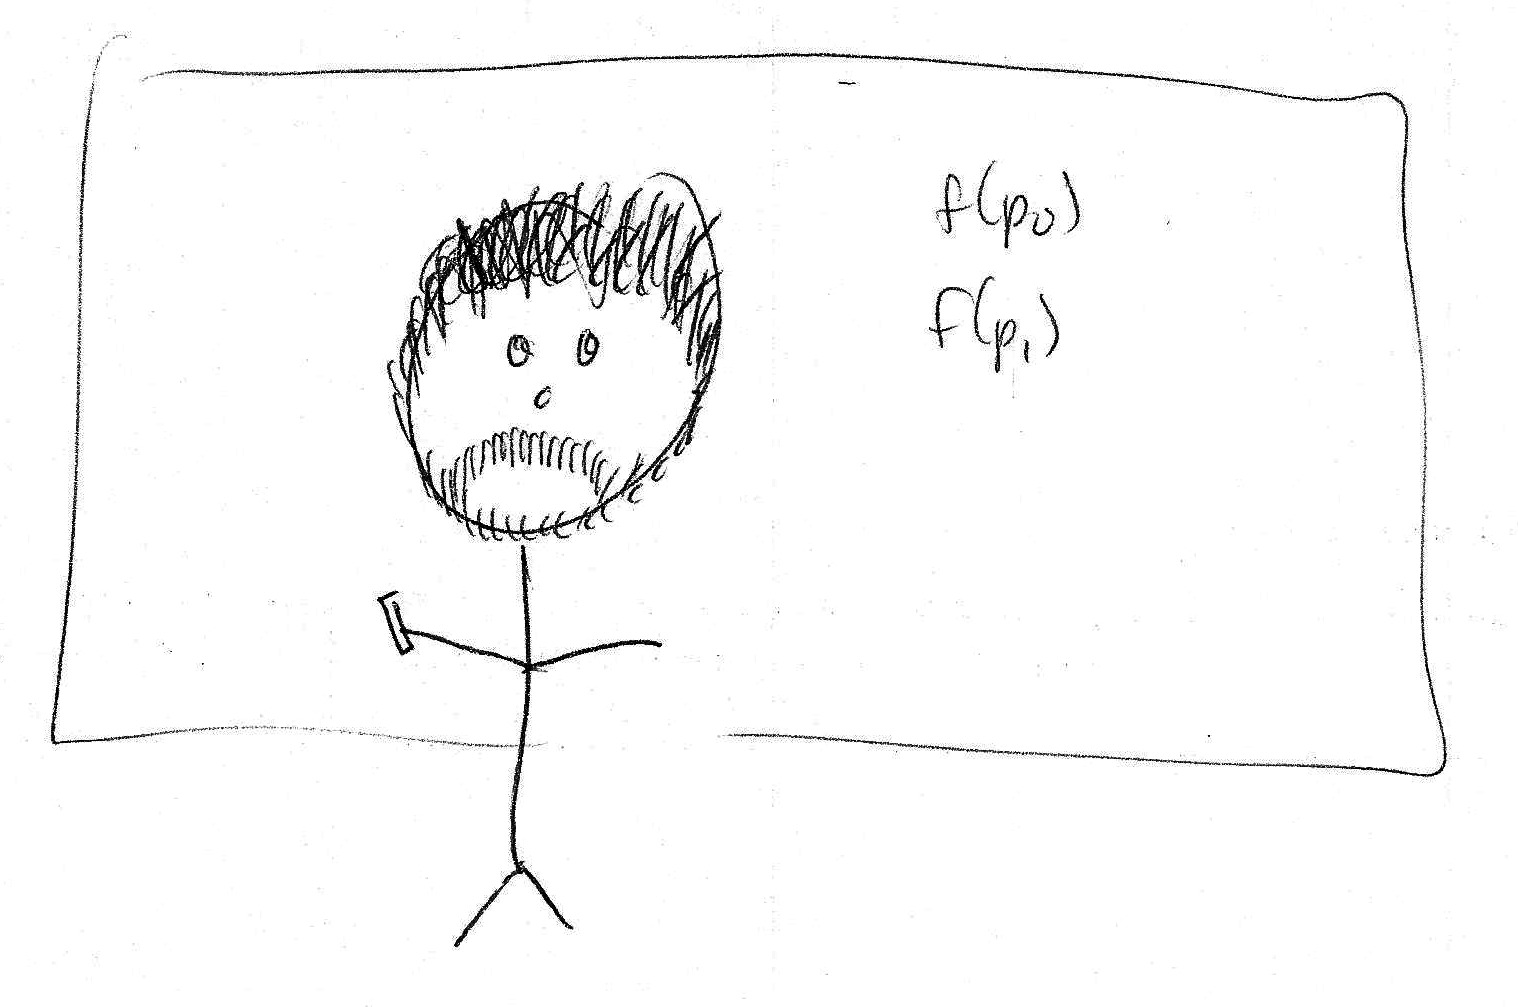 f(p₀)
f(p₁)